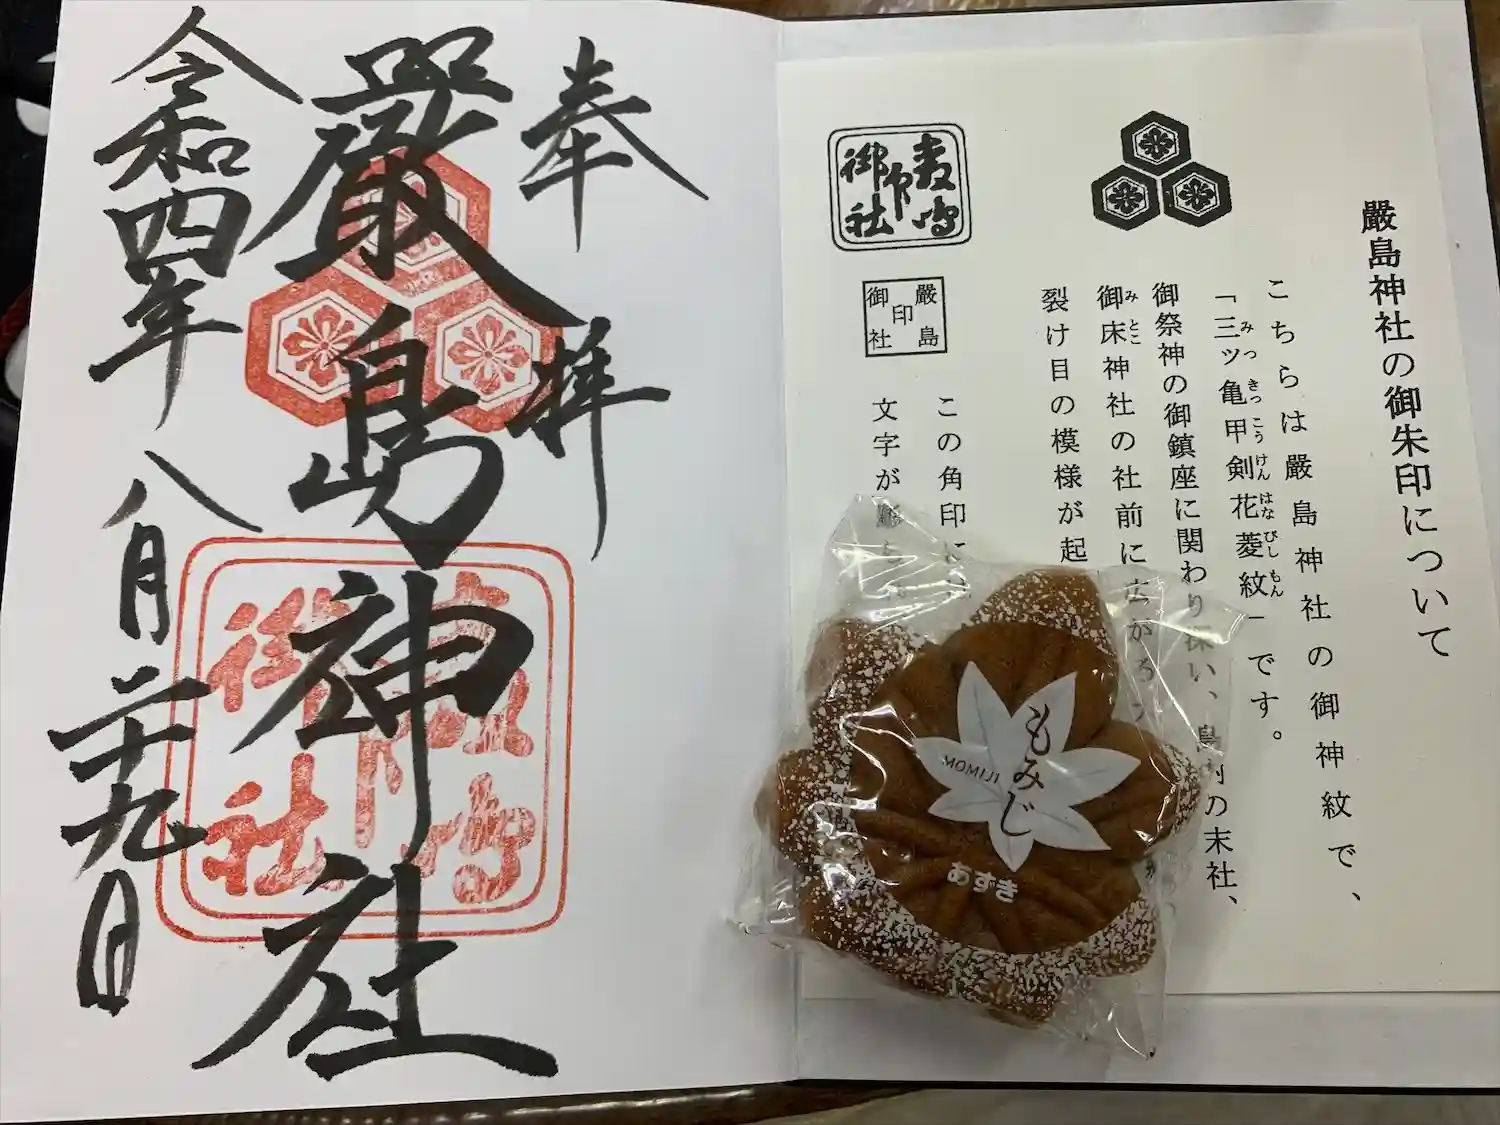 奉拝
嚴島神社
令和四年
八月二十九日
嚴島神社の御朱印について
こちらは嚴島神社の御神紋で、
「三ツ亀甲剣花菱紋」です。
みつきっこうけんはなびしもん
御祭神の御鎮座に関わり深い、島内の末社、
御床神社の社前に広がる
みとこ
裂け目の模様が起
嚴島
御印
御社
嚴島
印
御社
この角印に
文字が
もみじ
MOMIJI
あずき